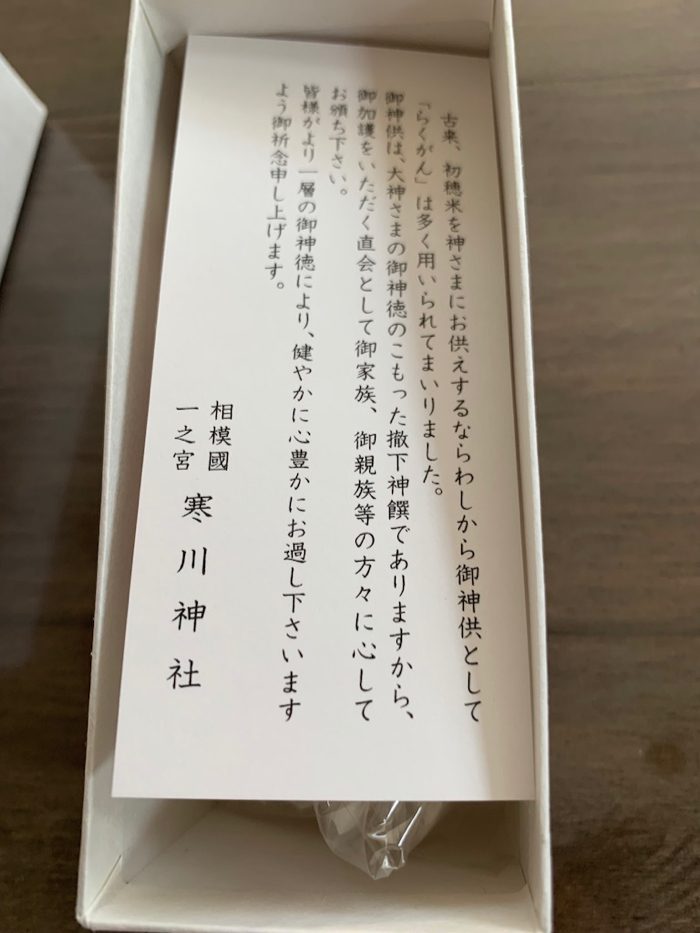 古来、初穂米を神さまにお供えするならわしから御神供として
「らくがん」は多く用いられてまいりました。
御神供は、大神さまの御神徳のこもった撤下神饌でありますから、
御加護をいただく直会として御家族、御親族等の方々に心して
お頒ち下さい。
皆様がより一層の御神徳により、健やかに心豊かにお過し下さいます
よう御祈念申し上げます。
相模國
一之宮
寒川神社